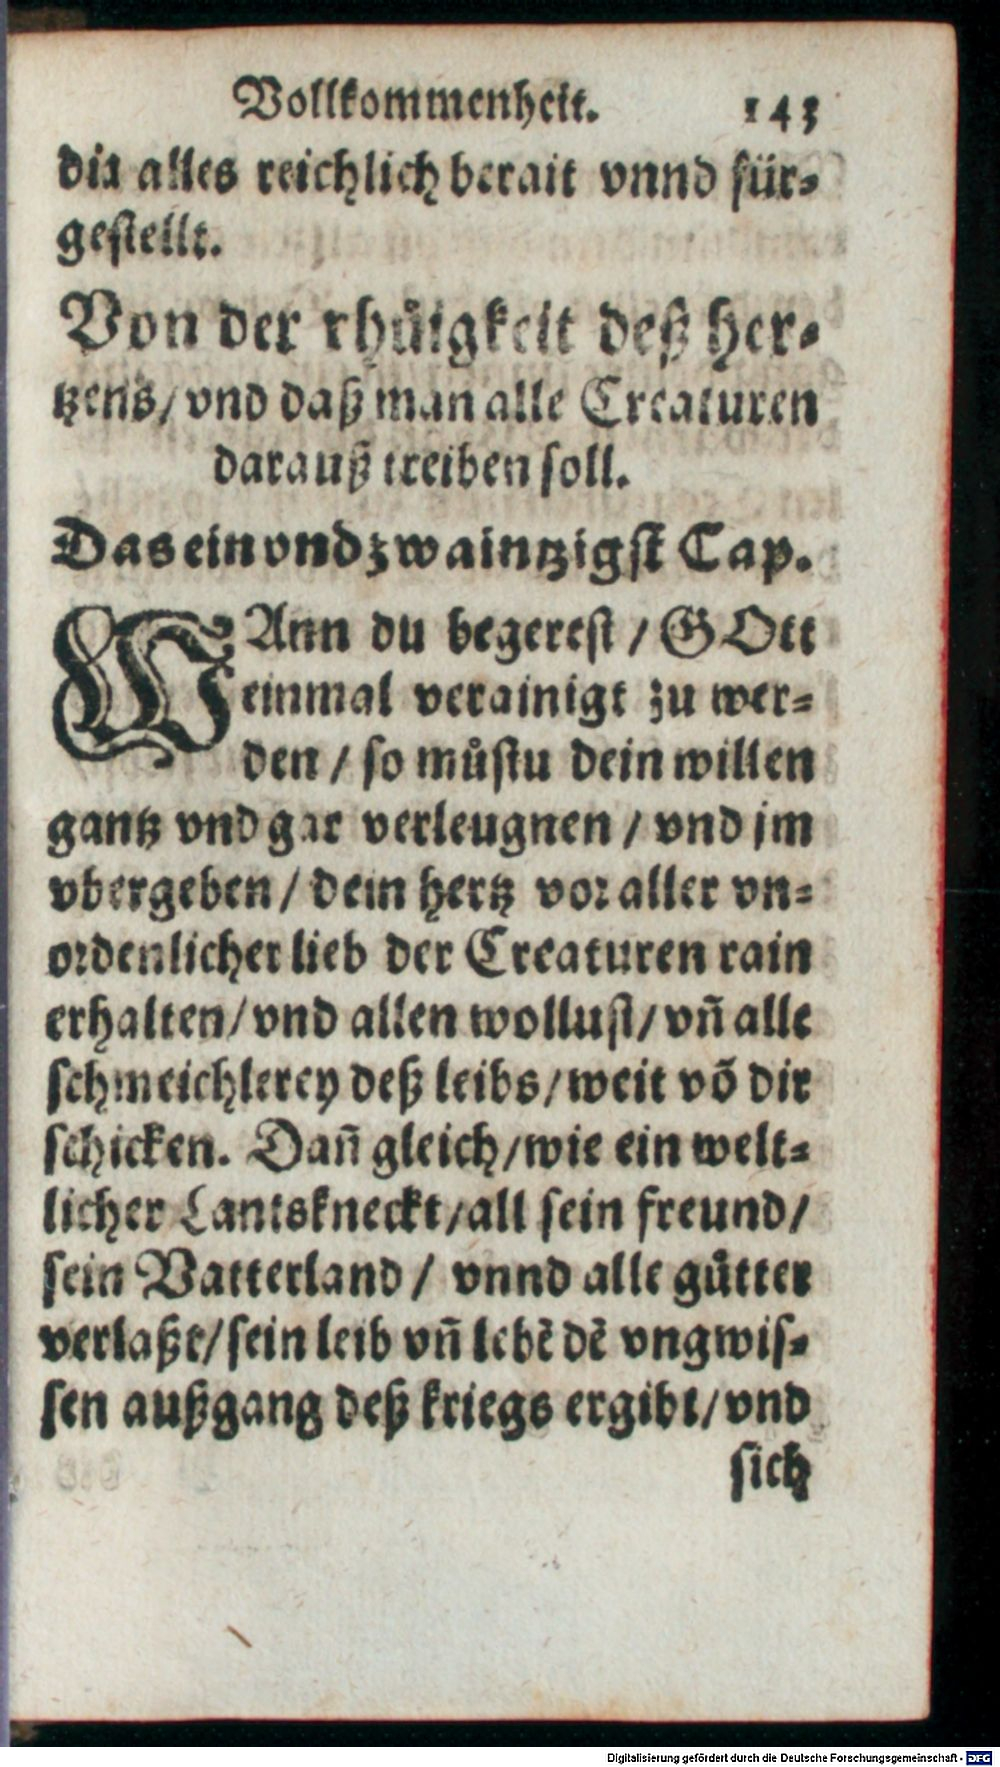 Vollkommenheit. 143
dir alles reichlich berait vnnd für-
gestellt.
Von der rhůigkeit deß her-
tzens/ vnd daß man alle Creaturen
darauß treiben soll.
Das ein vnd zwaintzigst Cap.
WAnn du begerest / GOtt
einmal verainigt zu wer-
den / so můstu dein willen
gantz vnd gar verleugnen / vnd jm
vbergeben / dein hertz vor aller vn-
ordenlicher lieb der Creaturen rain
erhalten/ vnd allen wollust/ vñ alle
schmeichlerey deß leibs/ weit võ dir
schicken. Dañ gleich/ wie ein welt-
licher Lantskneckt/ all sein freund/
sein Vatterland / vnnd alle gůtter
verlaßt/ sein leib vñ lebẽ dẽ vngwis-
sen außgang deß kriegs ergibt/ vnd
sich
Digitalisierung gefördert durch die Deutsche Forschungsgemeinschaft - DFG